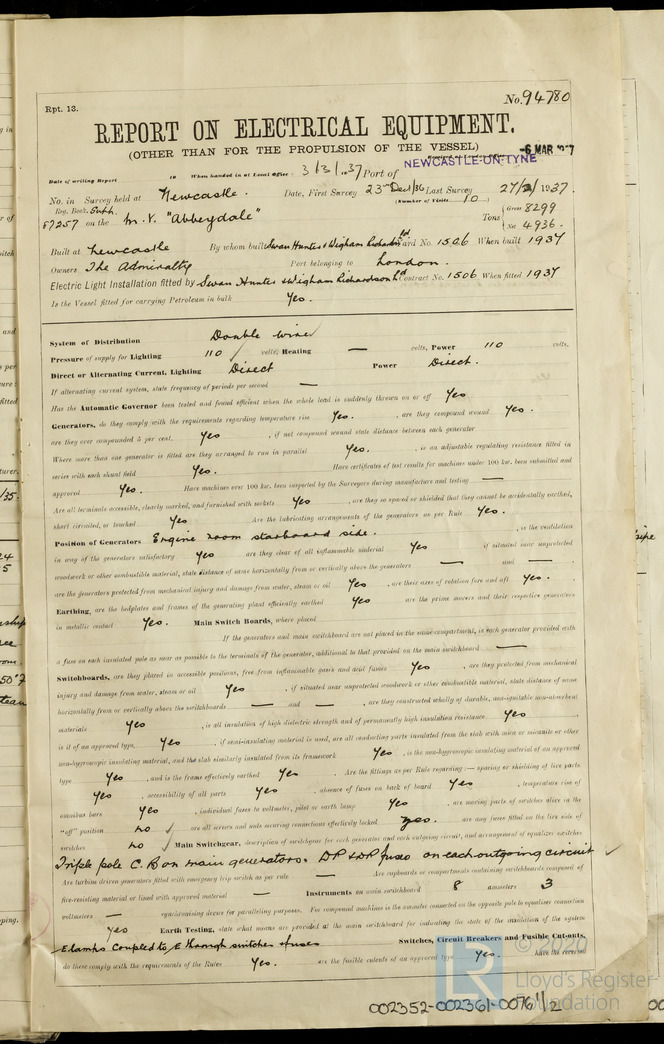 Rpt. 13. No. 94780
REPORT ON ELECTRICAL EQUIPMENT.
(OTHER THAN FOR THE PROPULSION OF THE VESSEL)
-6 MAR 1937
Date of writing Report 19 When handed in at Local Office 3/3/1937 Port of NEWCASTLE-ON-TYNE
No. in Survey held at Newcastle. Date, First Survey 23rd Dec/36 Last Survey 27/2/1937.
Reg. Book. Supp. (Number of Visits 10)
87257 on the M.V. "Abbeydale" Tons { Gross 8299 Net 4936.
Built at Newcastle By whom built Swan Hunter & Wigham Richardson Ld Yard No. 1506 When built 1937
Owners The Admiralty Port belonging to London.
Electric Light Installation fitted by Swan Hunter & Wigham Richardson Ld Contract No. 1506 When fitted 1937
Is the Vessel fitted for carrying Petroleum in bulk Yes.
System of Distribution Double wire
Pressure of supply for Lighting 110 volts, Heating — volts, Power 110 volts.
Direct or Alternating Current, Lighting Direct Power Direct.
If alternating current system, state frequency of periods per second —
Has the Automatic Governor been tested and found efficient when the whole load is suddenly thrown on or off Yes
Generators, do they comply with the requirements regarding temperature rise Yes. , are they compound wound Yes.
are they over compounded 5 per cent. Yes , if not compound wound state distance between each generator
Where more than one generator is fitted are they arranged to run in parallel Yes. , is an adjustable regulating resistance fitted in
series with each shunt field Yes. Have certificates of test results for machines under 100 kw. been submitted and
approved Yes. Have machines over 100 kw. been inspected by the Surveyors during manufacture and testing —
Are all terminals accessible, clearly marked, and furnished with sockets Yes , are they so spaced or shielded that they cannot be accidentally earthed,
short circuited, or touched Yes Are the lubricating arrangements of the generators as per Rule Yes.
Position of Generators Engine room starboard side. , is the ventilation
in way of the generators satisfactory Yes are they clear of all inflammable material Yes if situated near unprotected
woodwork or other combustible material, state distance of same horizontally from or vertically above the generators — and —
are the generators protected from mechanical injury and damage from water, steam or oil Yes , are their axes of rotation fore and aft Yes.
Earthing, are the bedplates and frames of the generating plant efficiently earthed Yes are the prime movers and their respective generators
in metallic contact Yes. Main Switch Boards, where placed
If the generators and main switchboard are not placed in the same compartment, is each generator provided with
a fuse on each insulated pole as near as possible to the terminals of the generator, additional to that provided on the main switchboard —
Switchboards, are they placed in accessible positions, free from inflammable gases and acid fumes Yes , are they protected from mechanical
injury and damage from water, steam or oil Yes , if situated near unprotected woodwork or other combustible material, state distance of same
horizontally from or vertically above the switchboards — and — , are they constructed wholly of durable, non-ignitable non-absorbent
materials Yes , is all insulation of high dielectric strength and of permanently high insulation resistance Yes
is it of an approved type, Yes , if semi-insulating material is used, are all conducting parts insulated from the slab with mica or micanite or other
non-hygroscopic insulating material, and the slab similarly insulated from its framework Yes , is the non-hygroscopic insulating material of an approved
type Yes , and is the frame effectively earthed Yes . Are the fittings as per Rule regarding:— spacing or shielding of live parts
Yes , accessibility of all parts Yes , absence of fuses on back of board Yes , temperature rise of
omnibus bars Yes , individual fuses to voltmeter, pilot or earth lamp Yes , are moving parts of switches alive in the
"off" position no are all screws and nuts securing connections effectively locked yes. are any fuses fitted on the live side of
switches no Main Switchgear, description of switchgear for each generator and each outgoing circuit, and arrangement of equalizer switches
Triple pole C.B on main generators. DP & DP fuses on each outgoing circuit
Are turbine driven generators fitted with emergency trip switch as per rule — Are cupboards or compartments containing switchboards composed of
fire-resisting material or lined with approved material — Instruments on main switchboard 8 ammeters 3
voltmeters — synchronising device for paralleling purposes. For compound machines is the ammeter connected on the opposite pole to equaliser connection
Yes Earth Testing, state what means are provided at the main switchboard for indicating the state of the insulation of the system
E. lamps Coupled to E through switches & fuses Switches, Circuit Breakers and Fusible Cut-outs,
do these comply with the requirements of the Rules Yes. are the fusible cutouts of an approved type Yes. have the reversed
© 2020
Lloyd's Register
Foundation
002352-002361-0076 1/2